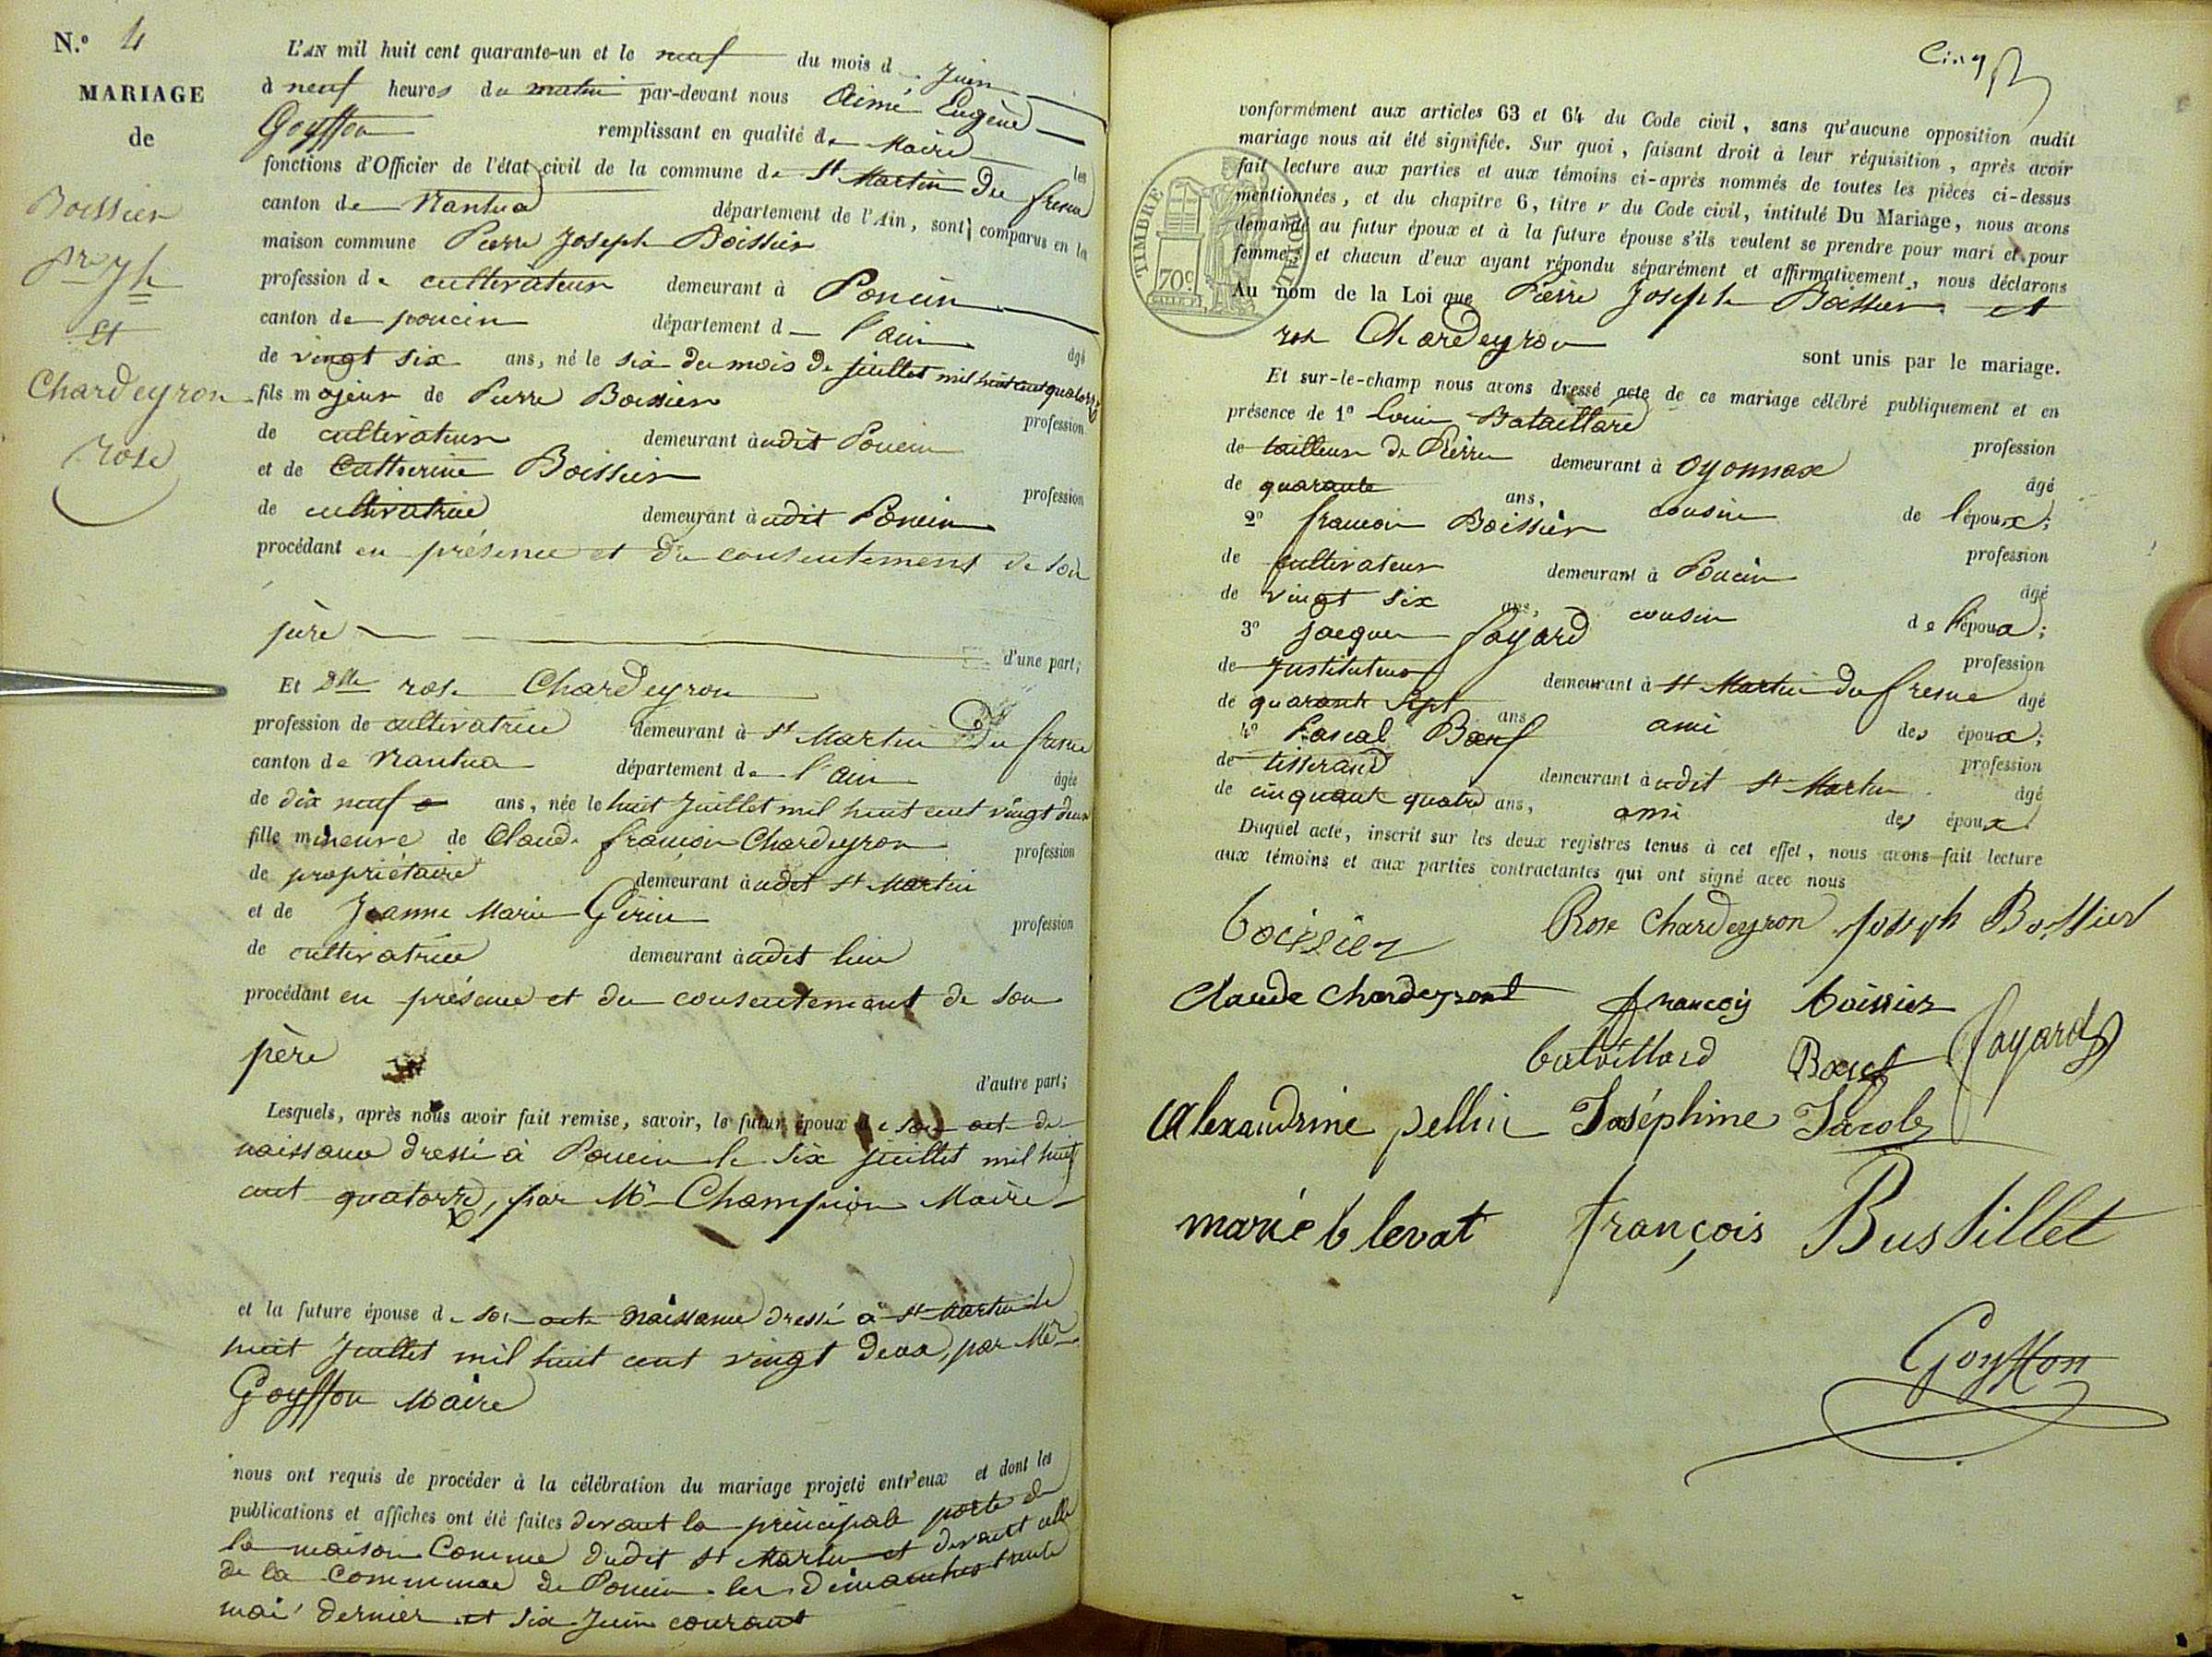 N.º 4
MARIAGE
de
Boissier
pre jh
et
Chardeyron
rose
L'AN mil huit cent quarante-un et le neuf du mois de Juin
à neuf heures du matin par-devant nous Aimé Eugène
Goyffon remplissant en qualité de Maire les
fonctions d'Officier de l'état civil de la commune de St Martin Du fresne
canton de Nantua département de l'Ain, sont comparus en la
maison commune Pierre Joseph Boissier
profession de cultivateur demeurant à Poncin
canton de poncin département d l'ain âgé
de vingt six ans, né le six du mois de juillet mil huit cent quatorze
fils majeur de Pierre Boissier profession
de cultivateur demeurant à udit Poncin
et de Catherine Boissier profession
de cultivatrice demeurant à udit Poncin
procédant en présence et du consentement de son
père d'une part;
Et Dlle rose Chardeyron
profession de cultivatrice demeurant à St Martin Du fresne
canton de Nantua département de l'ain âgée
de dix neuf ans, née le huit Juillet mil huit cent vingt deux
fille mineure de Claude françois Chardeyron profession
de propriétaire demeurant à udit St Martin
et de Jeanne Marie Girin profession
de cultivatrice demeurant à udit lieu
procédant en présence et du consentement de son
père
d'autre part;
Lesquels, après nous avoir fait remise, savoir, le futur époux de son act de
naissance dressé à Poncin le six juillet mil huit
cent quatorze, par Mr Champion Maire
et la future épouse de son acte naissance dressé à St Martin le
huit Juillet mil huit cent vingt deux, par Mr
Goyffon Maire
nous ont requis de procéder à la célébration du mariage projeté entr'eux et dont les
publications et affiches ont été faites devant la principale porte de
la maison Comme dudit St Martin et devant celle
de la Commune de Poncin les dimanches trente
mai dernier et six Juin courant
Cinq
conformément aux articles 63 et 64 du Code civil, sans qu'aucune opposition audit
mariage nous ait été signifiée. Sur quoi, faisant droit à leur réquisition, après avoir
fait lecture aux parties et aux témoins ci-après nommés de toutes les pièces ci-dessus
mentionnées, et du chapitre 6, titre V du Code civil, intitulé Du Mariage, nous avons
demandé au futur époux et à la future épouse s'ils veulent se prendre pour mari et pour
femme, et chacun d'eux ayant répondu séparément et affirmativement, nous déclarons
TIMBRE ROYAL
70c
Au nom de la Loi que Pierre Joseph Boissier et
rose Chardeyron sont unis par le mariage.
Et sur-le-champ nous avons dressé acte de ce mariage célébré publiquement et en
présence de 1º Louis Bataillard profession
de tailleur de Pierre demeurant à Oyonnax âgé
de quarante ans, cousin de l'époux;
2º françois Boissier profession
de cultivateur demeurant à Poncin âgé
de vingt six ans, cousin de l'époux;
3º jacques fayard profession
de Instituteur demeurant à St Martin du fresne âgé
de quarante sept ans ami des époux;
4º Pascal Bœuf profession
de tisserand demeurant à udit St Martin âgé
de cinquante quatre ans, ami des époux.
Duquel acte, inscrit sur les deux registres tenus à cet effet, nous avons fait lecture
aux témoins et aux parties contractantes qui ont signé avec nous
boissier Rose Chardeyron Joseph Boissier
Claude Chardeyront françois boissier
bataillard Boeuf fayard
Alexandrine pellin Joséphine Jacob
marie blevat françois Bustillet
Goyffon